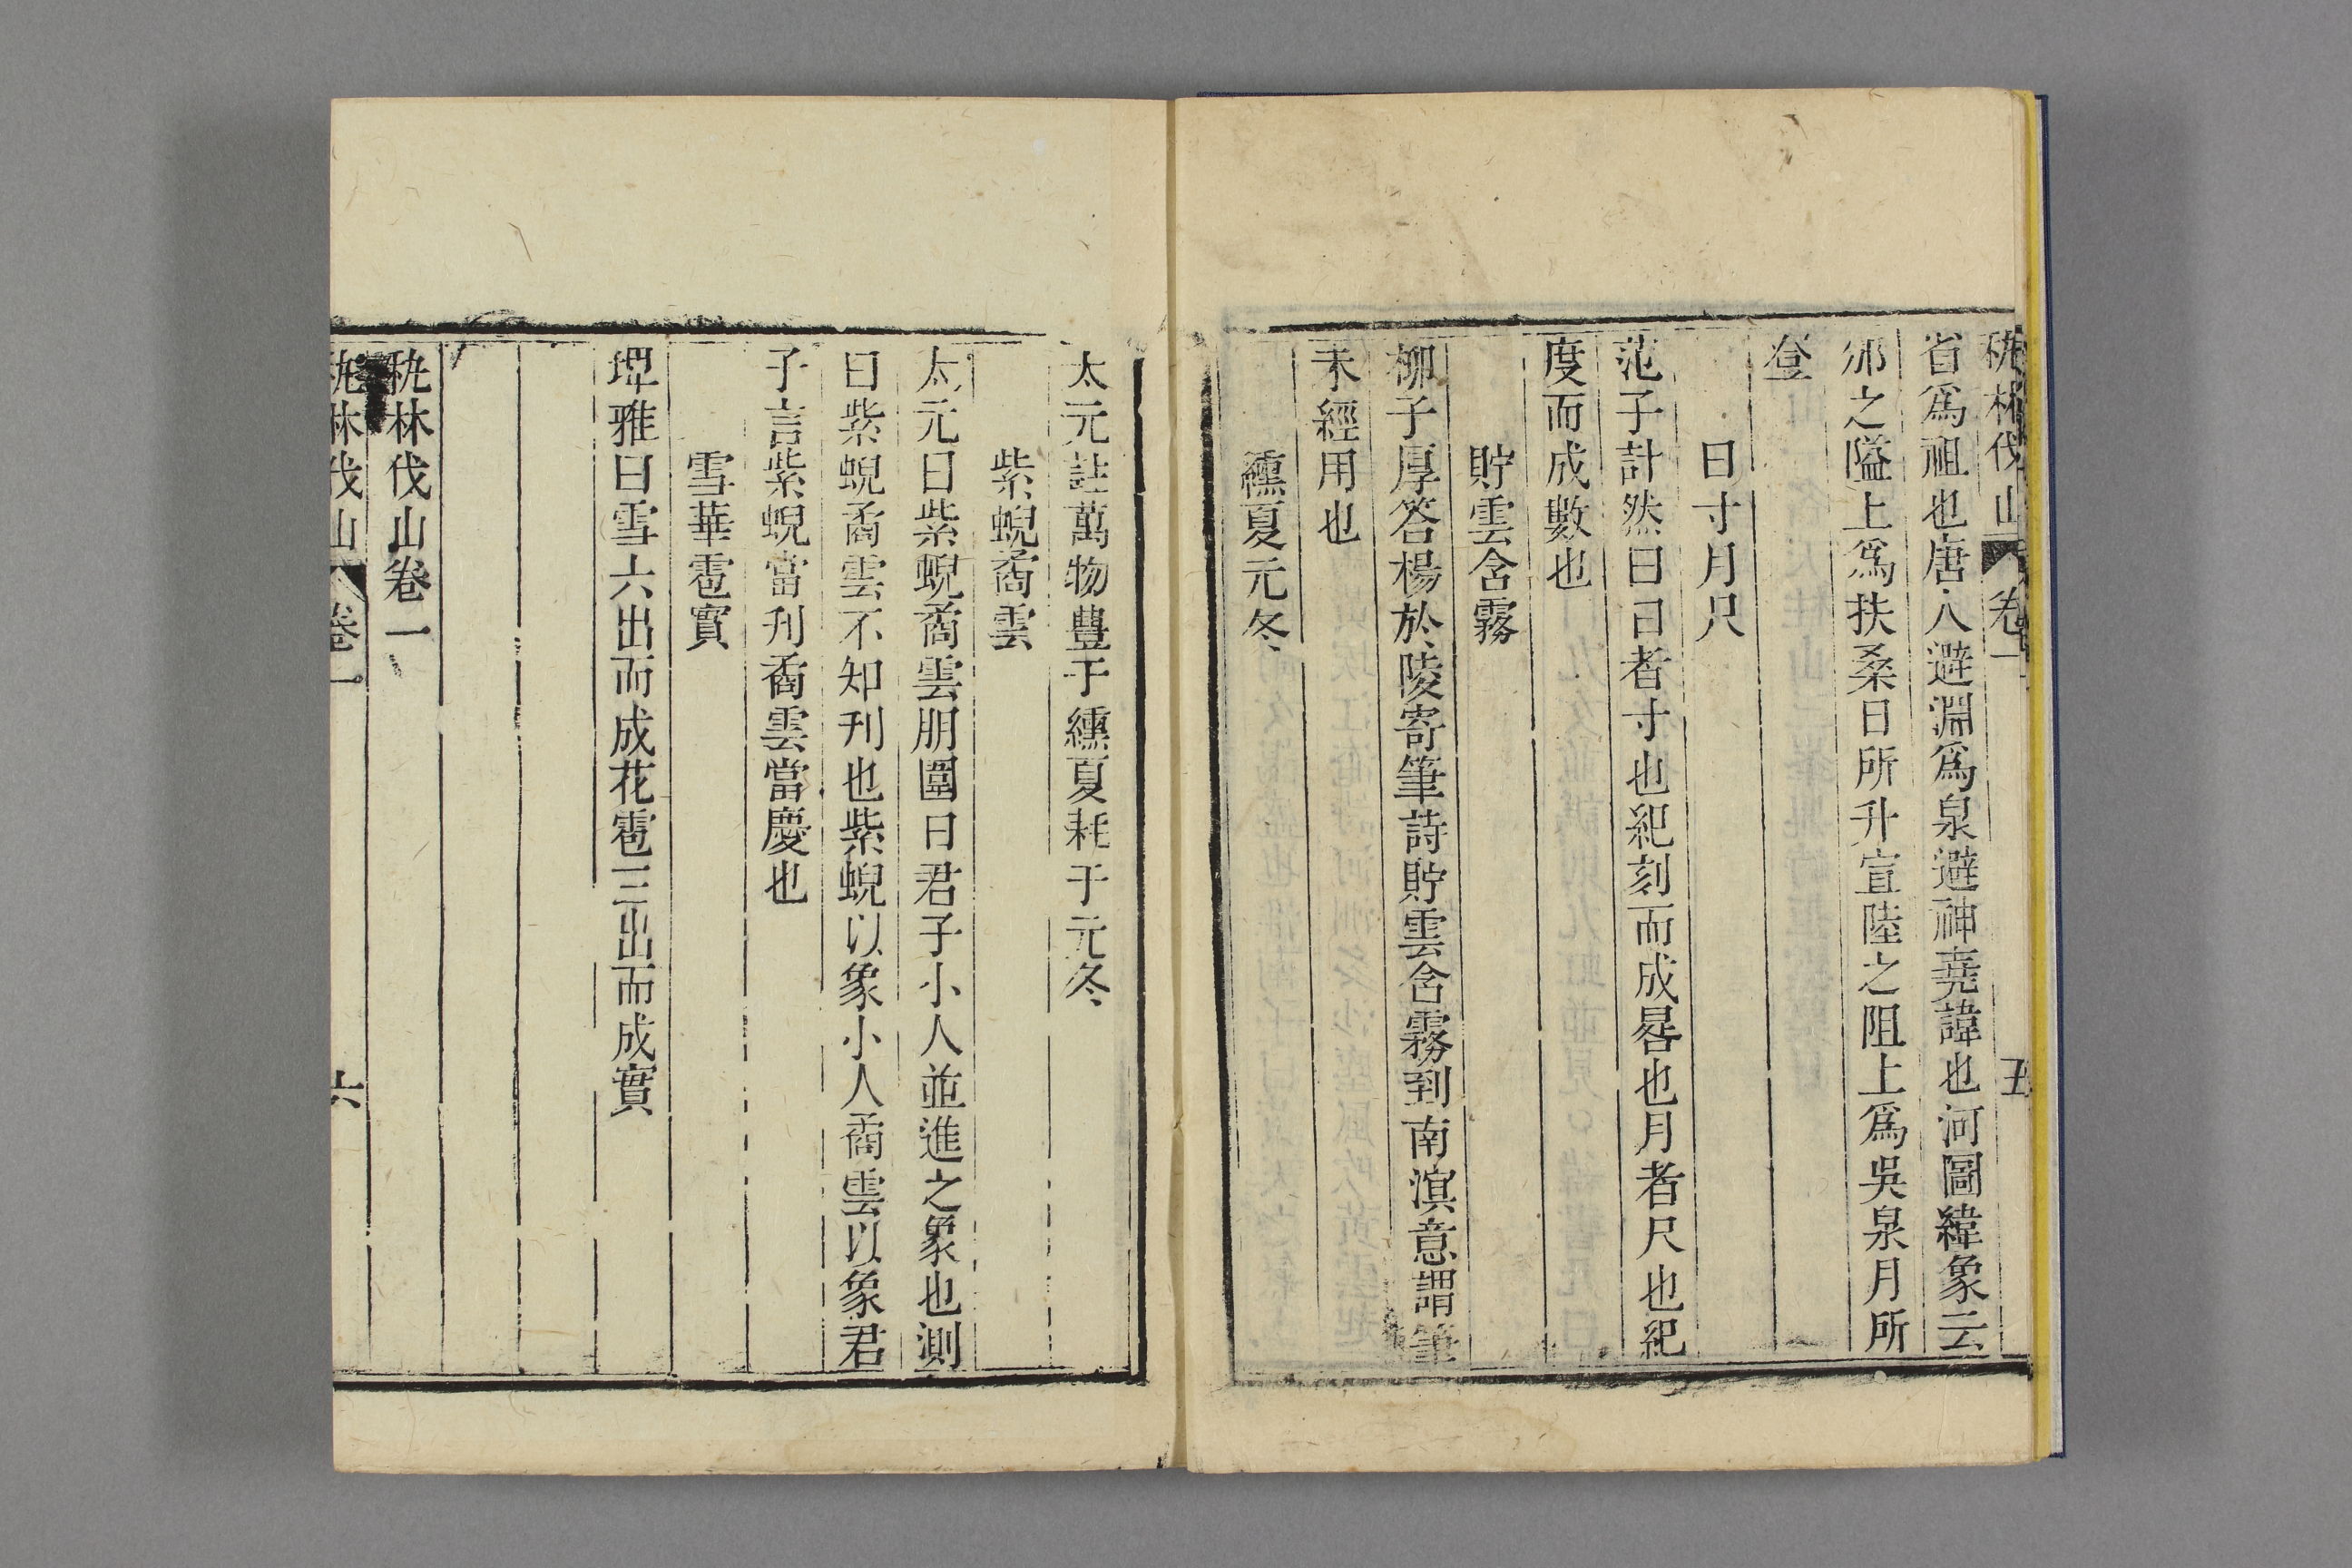 秇林伐山 卷一 五
省為祖也唐人避淵為泉避神堯諱也河圖緯象云
邠之隘上為扶桑日所升宣陸之阻上為吳泉月所
登
日寸月尺
范子計然曰日者寸也紀刻而成晷也月者尺也紀
度而成數也
貯雲含霧
柳子厚答楊於陵寄筆詩貯雲含霧到南溟意謂筆
未經用也
纁夏元冬
太元註萬物豐于纁夏耗于元冬
紫蜺矞雲
太元曰紫蜺矞雲朋圍日君子小人並進之象也測
曰紫蜺矞雲不知刋也紫蜺以象小人矞雲以象君
子言紫蜺當刋矞雲當慶也
雪華雹實
埤雅曰雪六出而成花雹三出而成實
秇林伐山卷一
秇林伐山 卷一 六